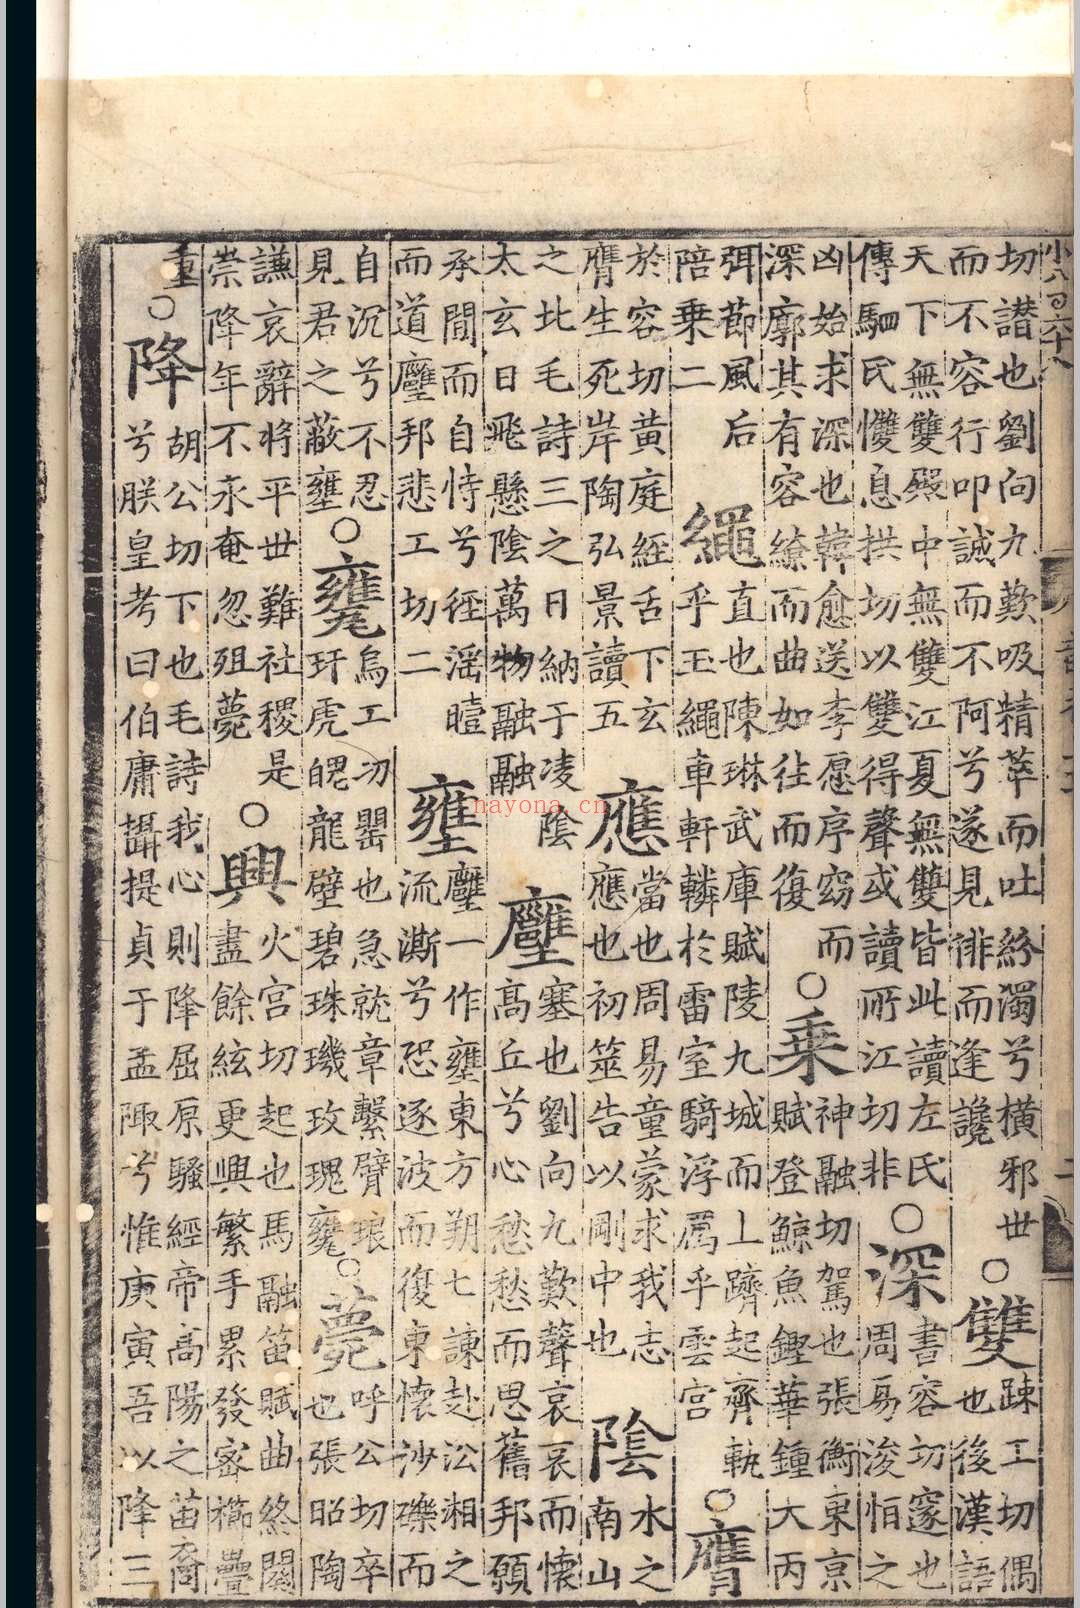 小八百六十八
切譖也劉向九歎吸精萃而吐紛濁兮橫邪世
而不容行叩誠而不阿兮遂見俳而逢讒
○雙
疎工切偶
也後漢語
天下無雙殿中無雙江夏無雙皆此讀左氏
傳駟氏𢥠息拱切以雙得聲或讀所江切非
○深
書容切邃也
周易浚恒之
凶始求深也韓愈送李愿序窈而
深廓其有容繚而曲如往而復
○乗
神融切駕也張衡東京
賦登鯨魚鏗華鍾大丙
弭節風后
陪乗二
繩
直也陳琳武庫賦陵九城而上躋起齊軌
乎玉繩車軒轔於雷室騎浮厲乎雲宮
○膺
於容切黄庭經舌下玄
膺生死岸陶弘景讀五
應
當也周易童蒙求我志
應也初筮告以剛中也
陰
水之
南山
之北毛詩三之日納于凌陰
太玄日飛懸陰萬物融融
廱
塞也劉向九歎聲哀哀而懷
高丘兮心愁愁而思舊邦願
承間而自恃兮徑滛曀
而道廱邦悲工切二
壅
廱一作壅東方朔七諫赴沅湘之
流澌兮恐逐波而復東懷沙礫而
自沉兮不忍
見君之蔽壅
○甕
烏工切罌也急就章繫臂琅
玕虎魄龍壁碧珠璣玫瑰甕
○薨
呼公切卒
也張昭陶
謙哀辭將平丗難社稷是
崇降年不永奄忽殂薨
○興
火宮切起也馬融笛賦曲終闋
盡餘絃更興繁手累發密櫛疊
重
○降
胡公切下也毛詩我心則降屈原騷經帝高陽之苗裔
兮朕皇考曰伯庸攝提貞于孟陬兮惟庚寅吾以降三
nayona.cn